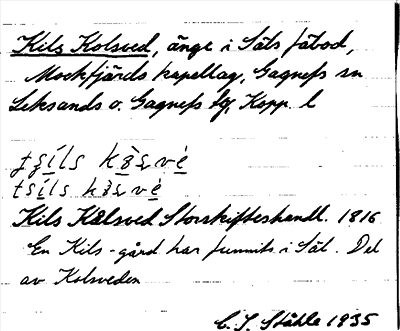 Kils Kolsved, änge i Säls fäbod,
Mockfjärds kapellag, Gagnefs sn
Leksands o. Gagnefs tg, Kopp. l
Kils Kolsved Storskifteshandl. 1816
En Kils-gård har funnits i Säl. Del
av Kolsveden
C. I. Ståhle 1935